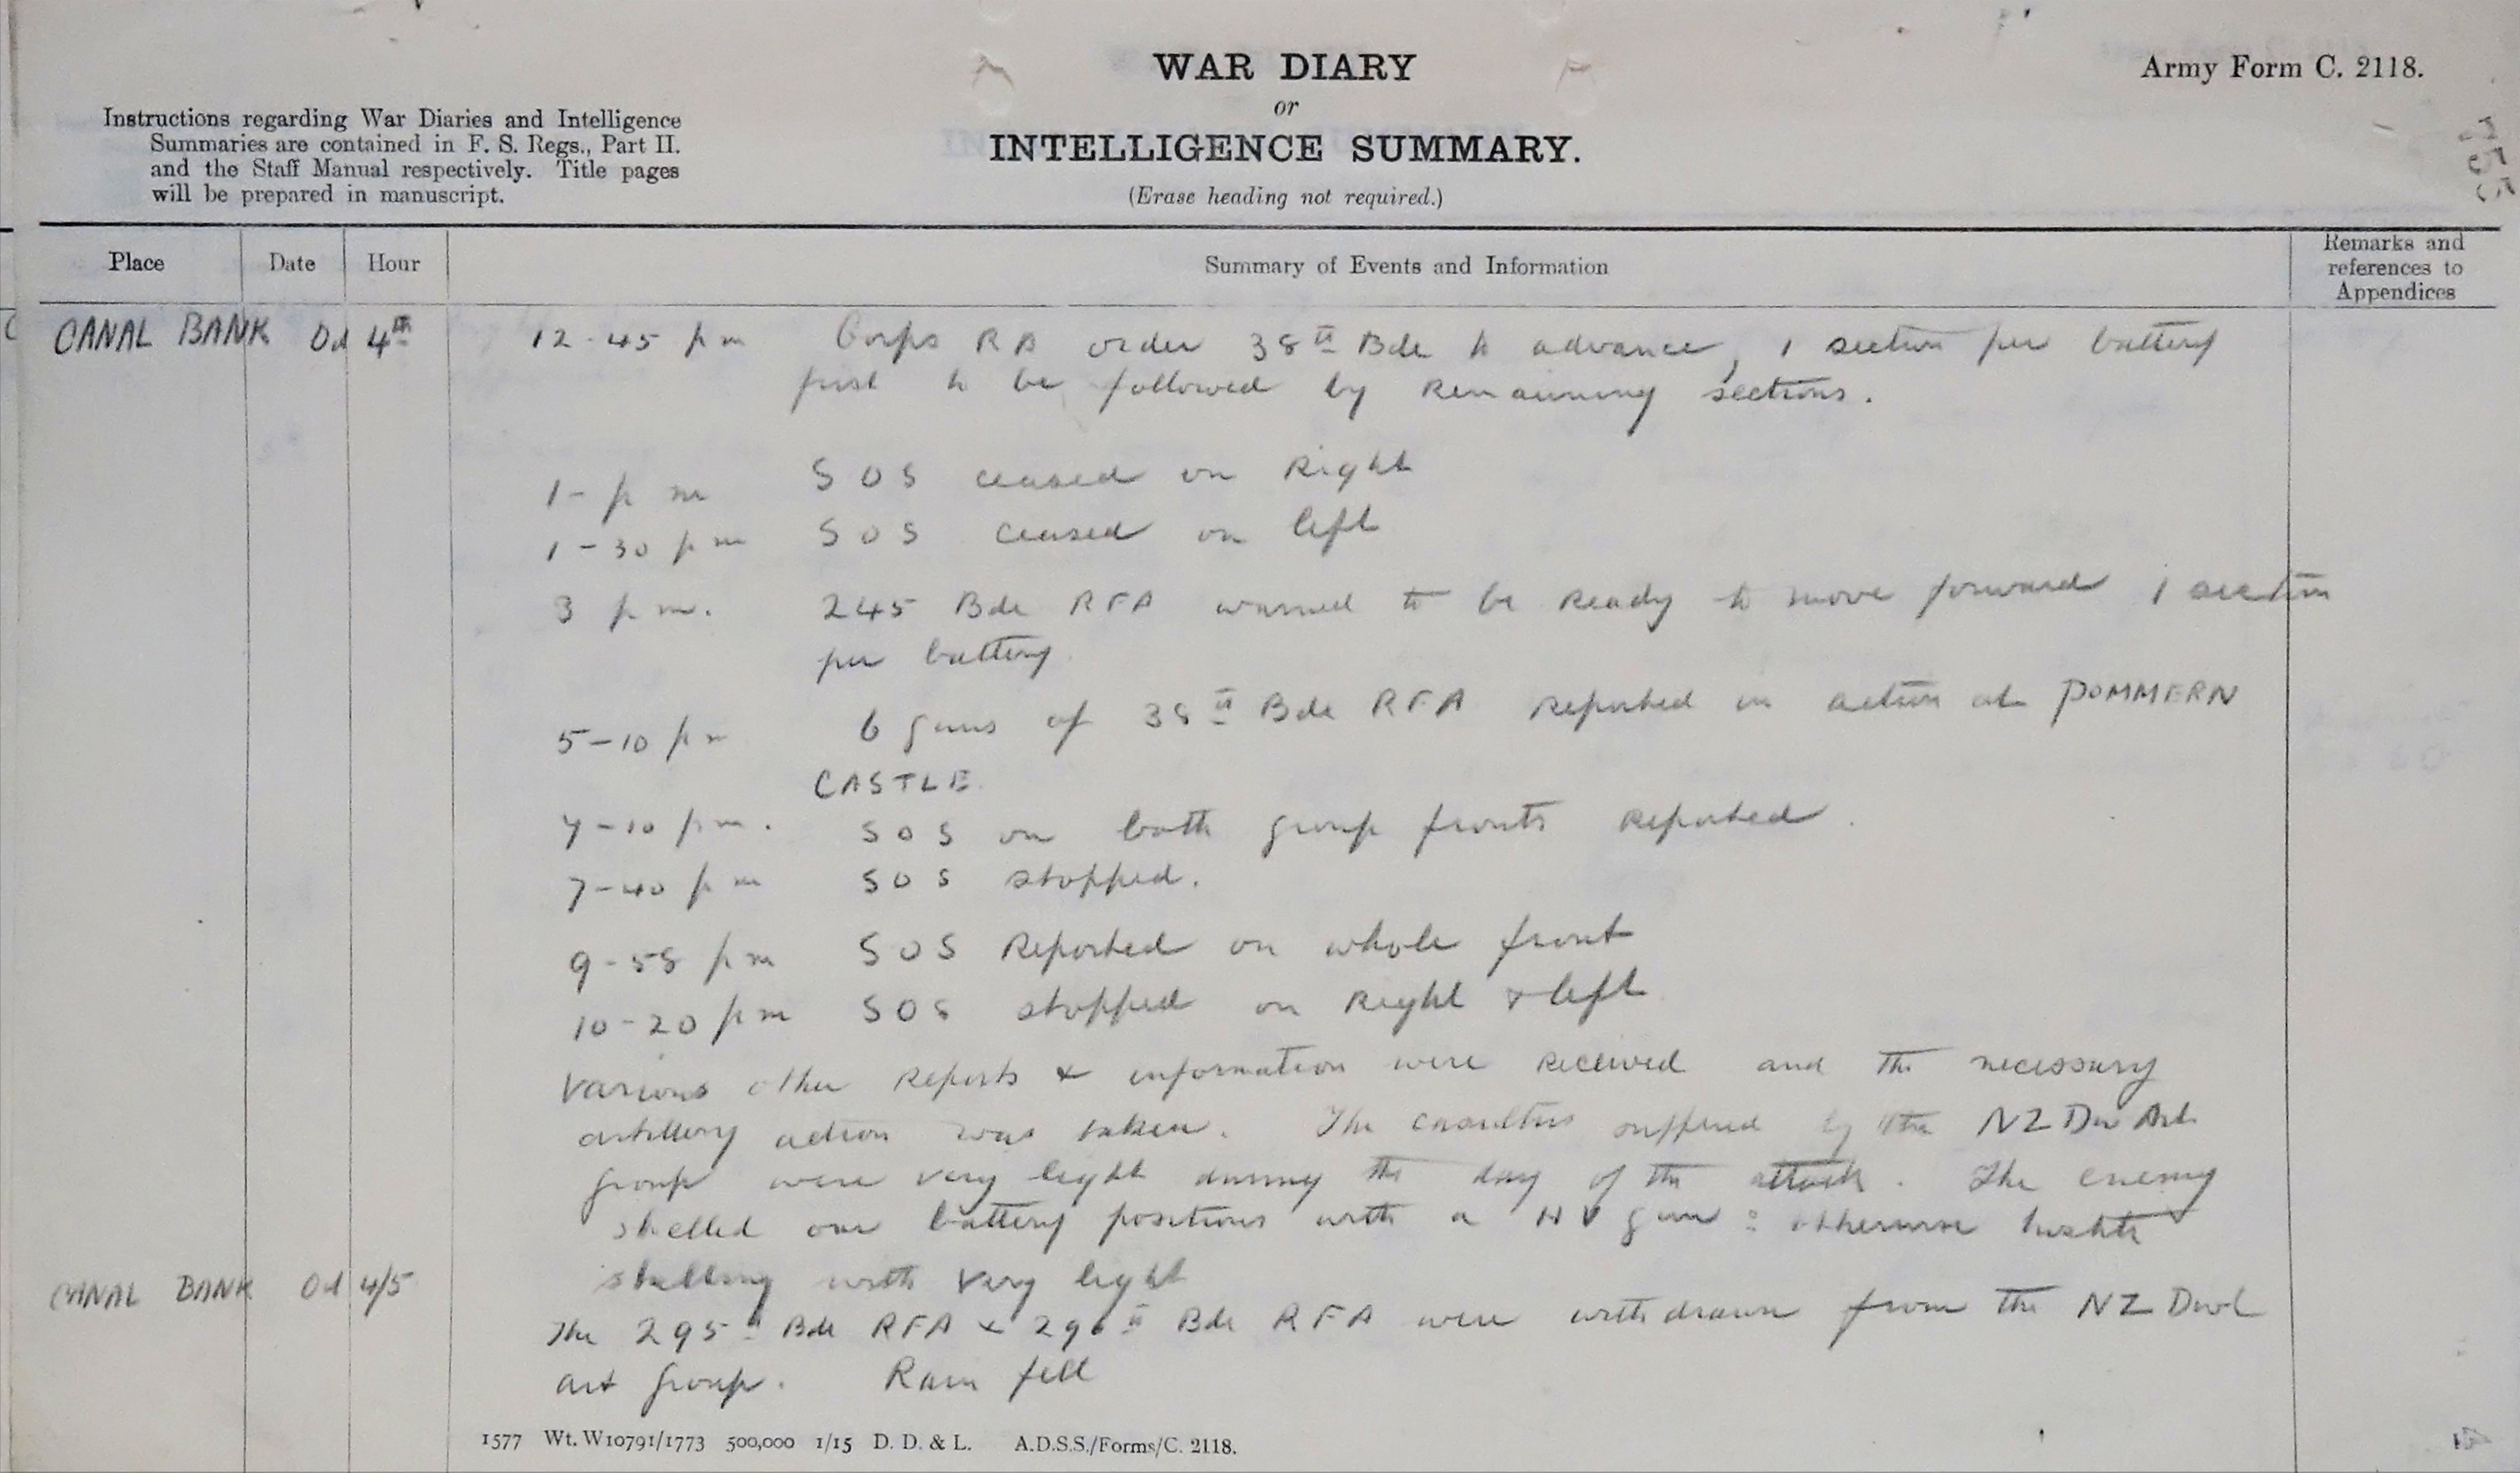 WAR DIARY
or
INTELLIGENCE SUMMARY.
(Erase heading not required.)
Army Form C. 2118.
Instructions regarding War Diaries and Intelligence
Summaries are contained in F. S. Regs., Part II.
and the Staff Manual respectively. Title pages
will be prepared in manuscript.
Place Date Hour Summary of Events and Information Remarks and references to Appendices
CANAL BANK Oct 4th 12-45 pm Corps RA order 38th Bde to advance, 1 section per battery
first to be followed by remaining sections.
1- pm SOS ceased on Right
1-30 pm SOS ceased on left
3 pm. 245 Bde RFA warned to be ready to move forward 1 section
per battery
5-10 pm 6 guns of 38th Bde RFA reported in action at POMMERN
CASTLE.
7-10 pm. SOS on both group fronts reported.
7-40 pm SOS stopped.
9-55 pm SOS Reported on whole front
10-20 pm SOS stopped on Right & left
Various other reports & information were received and the necessary
artillery action was taken. The casualties suffered by the NZ Div Art
group were very light during the day of the attack. The enemy
shelled our battery positions with a HV gun: otherwise hostile
shelling with very light
CANAL BANK Oct 4/5 The 295th Bde RFA & 296th Bde RFA were withdrawn from the NZ Divl
art group. Rain fell
1577 Wt. W10791/1773 500,000 1/15 D. D. & L. A.D.S.S./Forms/C. 2118.